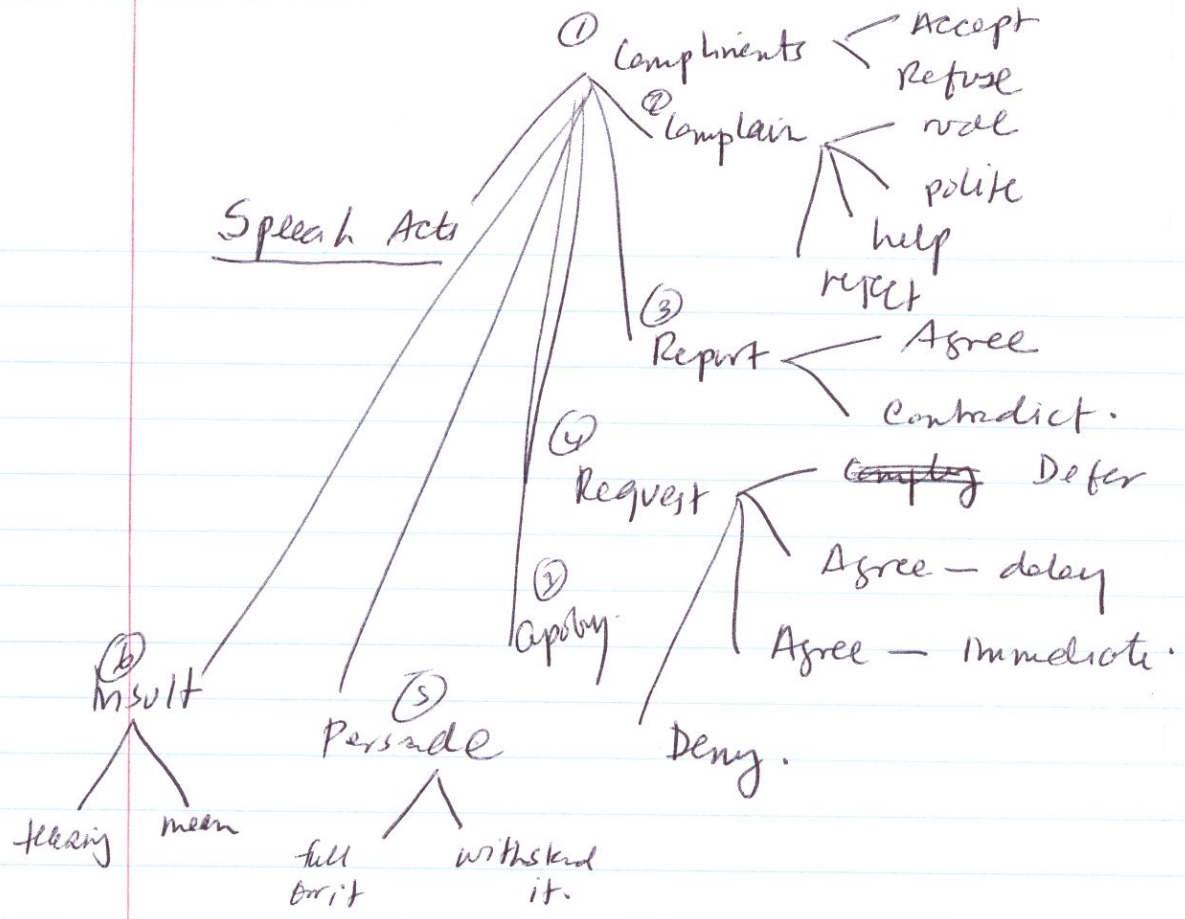 ① Compliments
Accept
Refuse
② Complain
rude
polite
help
reject
Speech Acts
③
Report
Agree
Contradict.
④
Request
Defer
Agree – delay
Agree – Immediate.
Deny.
apology
⑥
Insult
teasing
mean
⑤
Persuade
fall
for it
withstand
it.